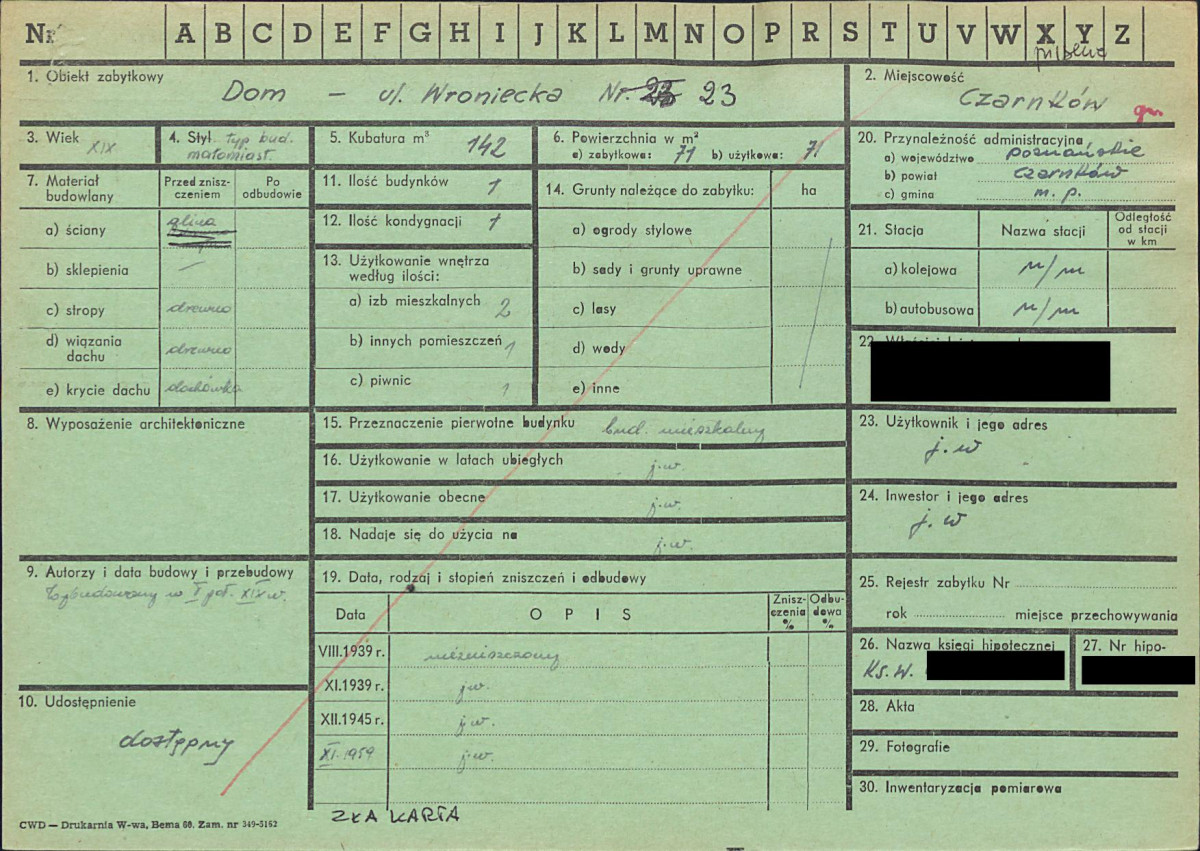 Nr A B C D E F G H I J K L M N O P R S T U V W X Y Z
1. Obiekt zabytkowy
Dom - ul. Wroniecka Nr. 23
2. Miejscowość
Czarnków
3. Wiek XIX
4. Styl typ. bud.
małomiast.
5. Kubatura m³ 142
6. Powierzchnia w m²
a) zabytkowa: 71 b) użytkowa: 71
20. Przynależność administracyjna
a) województwo poznańskie
b) powiat Czarnków
c) gmina m. p.
7. Materiał budowlany
Przed zniszczeniem
Po odbudowie
a) ściany glina
b) sklepienia —
c) stropy drewno
d) wiązania dachu drewno
e) krycie dachu dachówka
11. Ilość budynków 1
12. Ilość kondygnacji 1
13. Użytkowanie wnętrza
według ilości:
a) izb mieszkalnych 2
b) innych pomieszczeń 1
c) piwnic 1
14. Grunty należące do zabytku: ha
a) ogrody stylowe
b) sady i grunty uprawne
c) lasy
d) wody
e) inne
21. Stacja Nazwa stacji Odległość od stacji w km
a) kolejowa n/m
b) autobusowa n/m
22.
8. Wyposażenie architektoniczne
15. Przeznaczenie pierwotne budynku bud. mieszkalny
16. Użytkowanie w latach ubiegłych j.w.
17. Użytkowanie obecne j.w.
18. Nadaje się do użycia na j.w.
23. Użytkownik i jego adres
j.w
24. Inwestor i jego adres
j.w
9. Autorzy i data budowy i przebudowy
wybudowany w I poł. XIX w.
19. Data, rodzaj i stopień zniszczeń i odbudowy
Data OPIS Zniszczenia % Odbudowa %
VIII.1939 r. niezniszczony
XI.1939 r. j.w.
XII.1945 r. j.w.
XI.1959 j.w.
25. Rejestr zabytku Nr
rok miejsce przechowywania
26. Nazwa księgi hipotecznej
Ks.W.
27. Nr hipo-
10. Udostępnienie
dostępny
28. Akta
29. Fotografie
30. Inwentaryzacja pomiarowa
ZŁA KARTA
CWD — Drukarnia W-wa, Bema 60. Zam. nr 349-5162